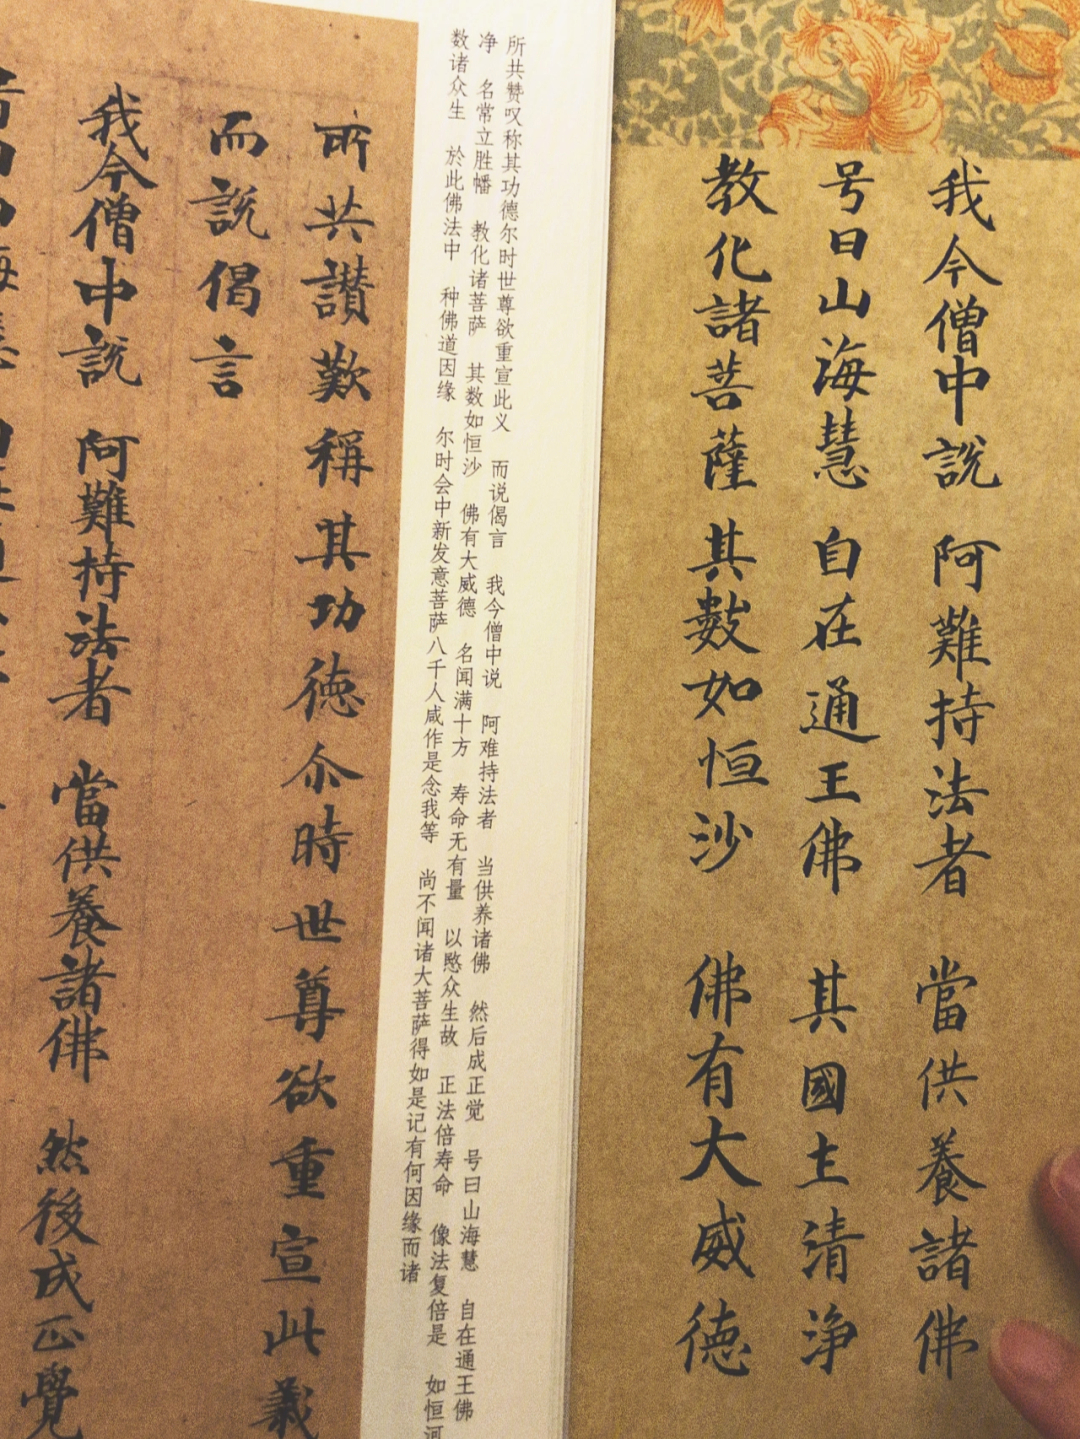 我今僧中說 阿難持法者 當供養諸佛
号曰山海慧 自在通王佛 其國土清浄
教化諸菩薩 其數如恒沙 佛有大威德
所共赞叹称其功德尔时世尊欲重宣此义 而说偈言 我今僧中说 阿难持法者 当供养诸佛 然后成正觉 号曰山海慧 自在通王佛
净 名常立胜幡 教化诸菩萨 其数如恒沙 佛有大威德 名闻满十方 寿命无有量 以愍众生故 正法倍寿命 像法复倍是 如恒河
数诸众生 於此佛法中 种佛道因缘 尔时会中新发意菩萨八千人咸作是念我等 尚不闻诸大菩萨得如是记有何因缘而诸
所共讚歎稱其功德尒時世尊欲重宣此義
而說偈言
我今僧中說 阿難持法者 當供養諸佛 然後成正覺